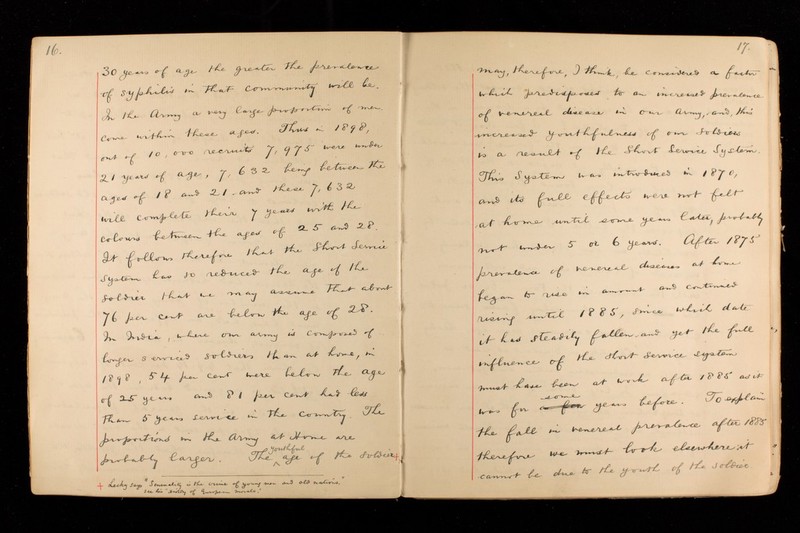 16.
30 years of age the greater the prevalence
of syphilis in that community will be.
In the Army a very large proportion of men
come within these ages. Thus in 1898,
out of 10,000 recruits 7,975 were under
21 years of age, 7,632 being between the
ages of 18 and 21 and these 7,632
will complete their 7 years with the
colours between the ages of 25 and 28.
It follows therefore that the Short Service
System has so reduced the age of the
soldier that we may assume that about
76 per cent are below the age of 28.
In India, where our army is composed of
longer serviced soldiers than at home, in
1898, 54 per cent were below the age
of 25 years and 81 per cent had less
than 5 years service in the Country. The
proportions in the Army at Home are
probably larger. The youthful age of the Soldier +
+ Lecky says "Sensuality is the vice of young men and old nations"
see his "History of European Morals."
17.
may, therefore, I think, be considered a factor
which predisposes to an increased prevalence
of venereal disease in our Army, and, this
increased youthfulness of our Soldiers
is a result of the Short Service System.
This System was introduced in 1870,
and its full effects were not felt
at home until some years later, probably
not under 5 or 6 years. After 1875
prevalence of venereal diseases at home
began to rise in amount and continued
rising until 1885, since which date
it has steadily fallen, and yet the full
influence of the short service system
must have been at work after 1885 as it
was for some years before. To explain
the fall in venereal prevalence after 1885
therefore we must look elsewhere, it
cannot be due to the youth of the soldier.